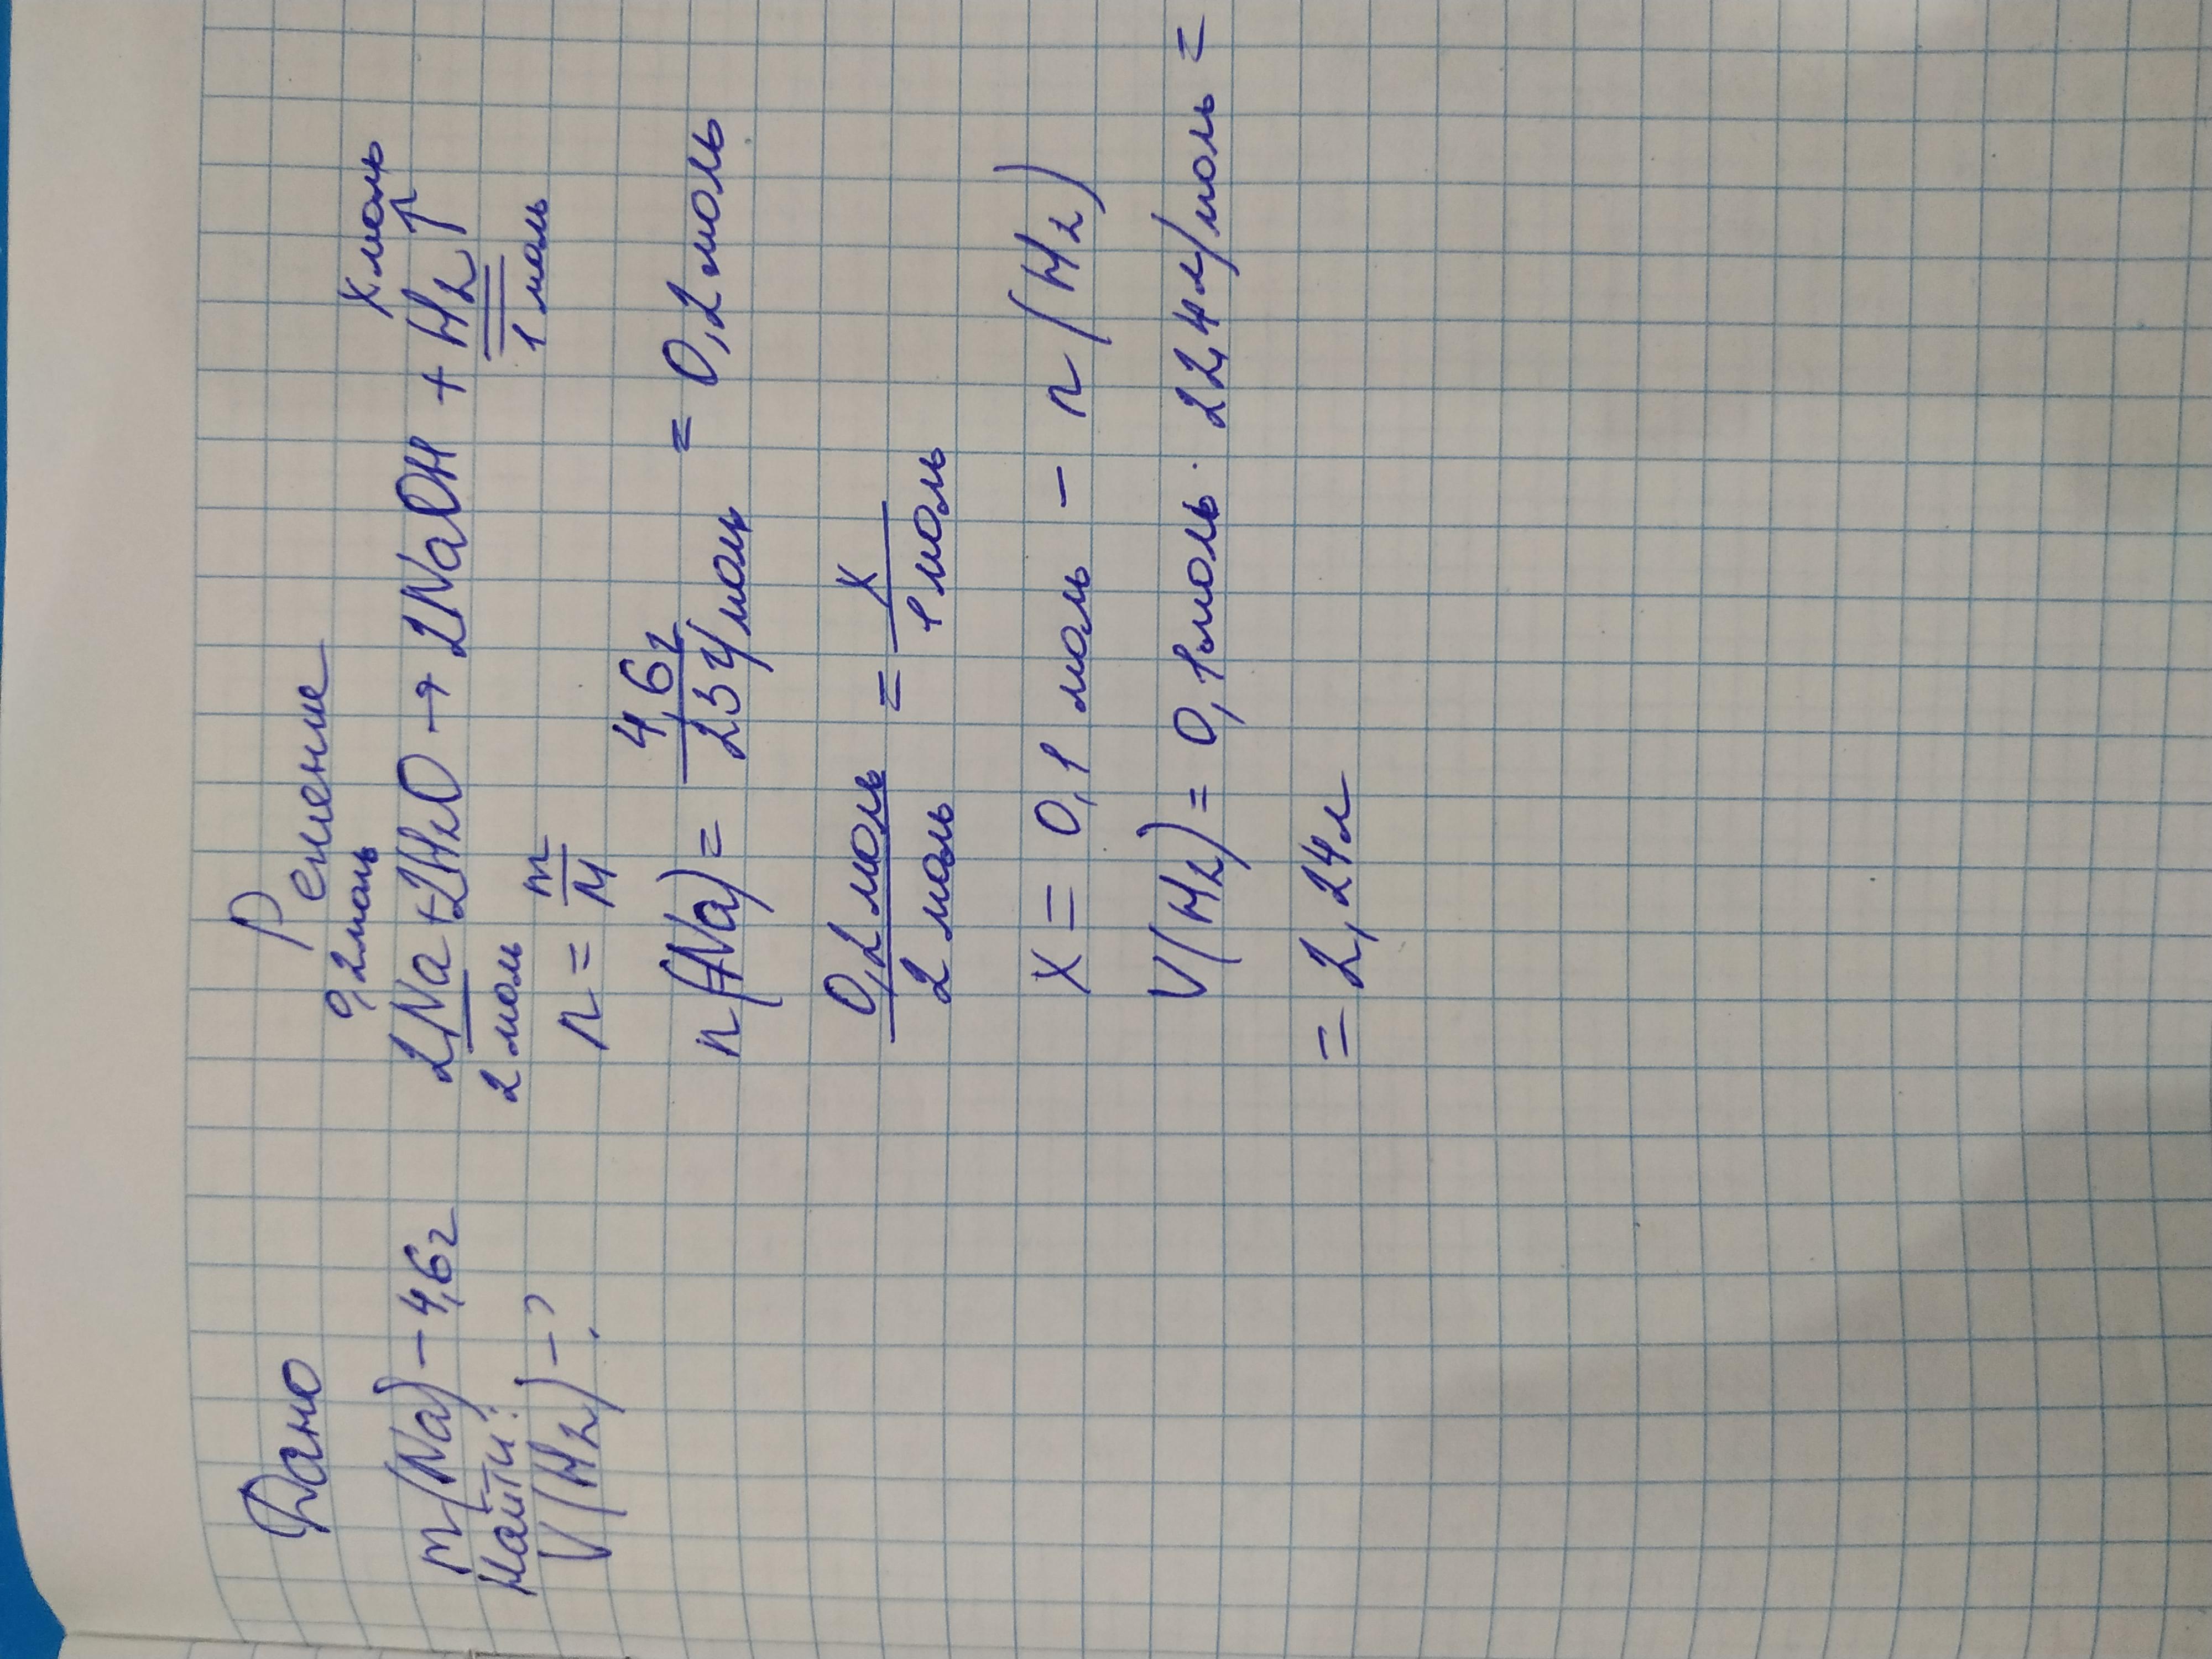 Дано
m(Na) – 4,6 г
Найти:
V(H2) – ?
Решение
0,2 моль
x моль
2Na + 2H2O → 2NaOH + H2↑
2 моль
1 моль
n = m/M
n(Na) = 4,6 г / 23 г/моль = 0,2 моль
0,2 моль / 2 моль = x / 1 моль
x = 0,1 моль – n(H2)
V(H2) = 0,1 моль · 22,4 л/моль =
= 2,24 л